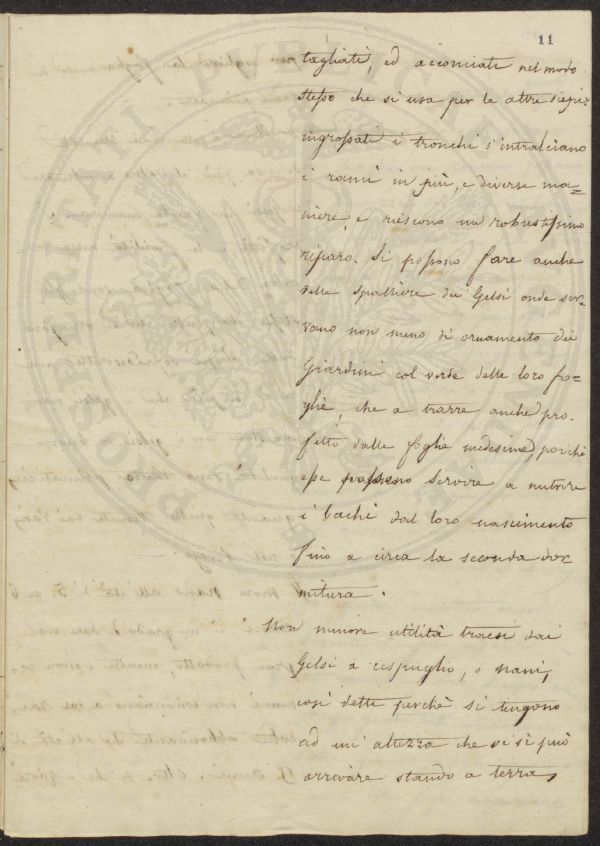 11
tagliati, ed acconciati nel modo
stesso che si usa per le altre siepi:
ingrossati i tronchi s'intralciano
i rami in più, e diverse ma=
niere, e riescono un robustissimo
riparo. Si possono fare anche
delle spalliere dei Gelsi onde ser=
vano non meno di ornamento dei
Giardini col verde delle loro fo=
glie, che a trarre anche pro=
fitto dalle foglie medesime, poichè
esse possono servire a nutrire
i bachi dal loro nascimento
fino a circa la seconda dor
mitura.
Non minore utilità traesi dai
Gelsi a cespuglio, o nani,
così detti perchè si tengono
ad un' altezza che vi si può
arrivare stando a terra,